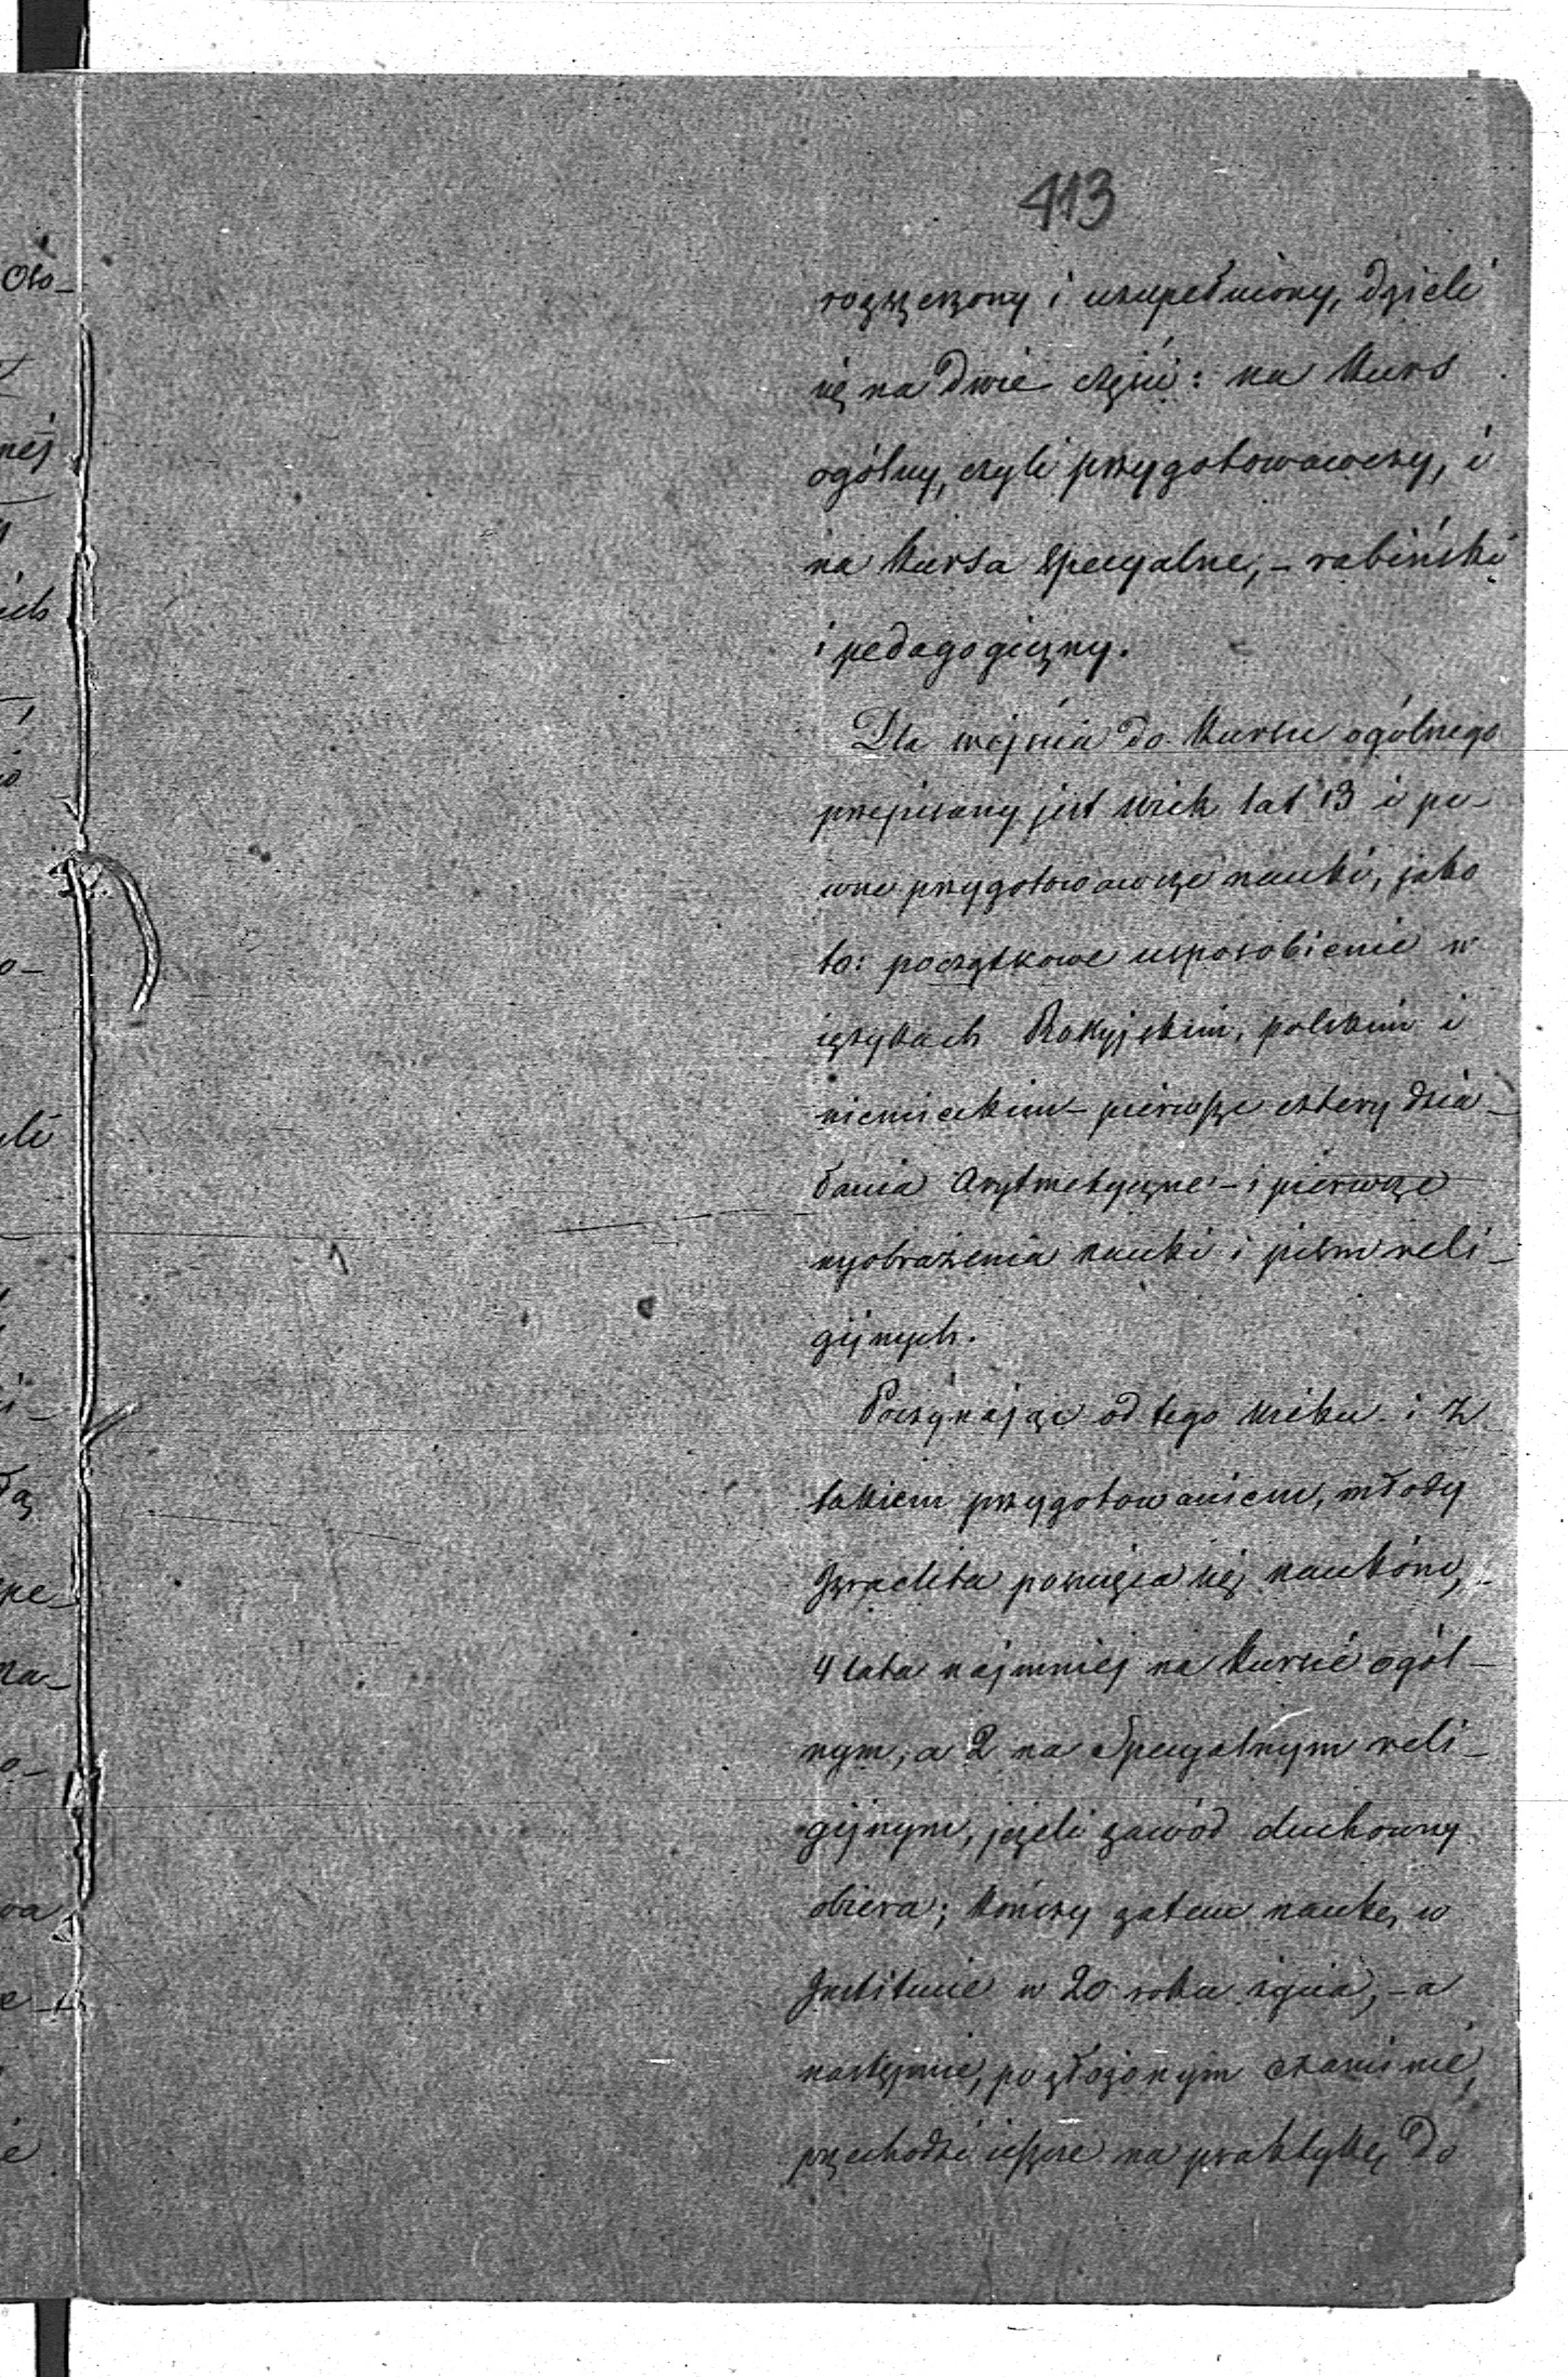 413
rozszerzony i uzupełniony, dzieli
się na dwie części: na Kurs
ogólny, czyli przygotowawczy, i
na Kursa specyalne, - rabiński
i pedagogiczny.
Dla wejścia do Kursu ogólnego
przepisany jest wiek lat 13 i pe-
wne przygotowawcze nauki, jako
to: początkowe usposobienie w
językach Rossyjskim, polskim i
niemieckim - pierwsze cztery dzia-
łania Arytmetyczne - i pierwsze
wyobrażenia nauki i pism reli-
gijnych.
Poczynając od tego wieku i z
takiem przygotowaniem, młody
Izraelita poświęca się naukom,
4 lata najmniej na Kursie ogól-
nym, a 2 na Specyalnym reli-
gijnym, jeżeli zawód duchowny
obiera; kończy zatem naukę w
Institucie w 20 roku życia, - a
następnie, po złożonym examinie,
przechodzi jeszcze na praktykę do